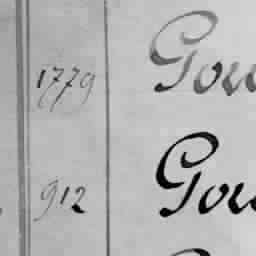 1779 Gou
912 Gou